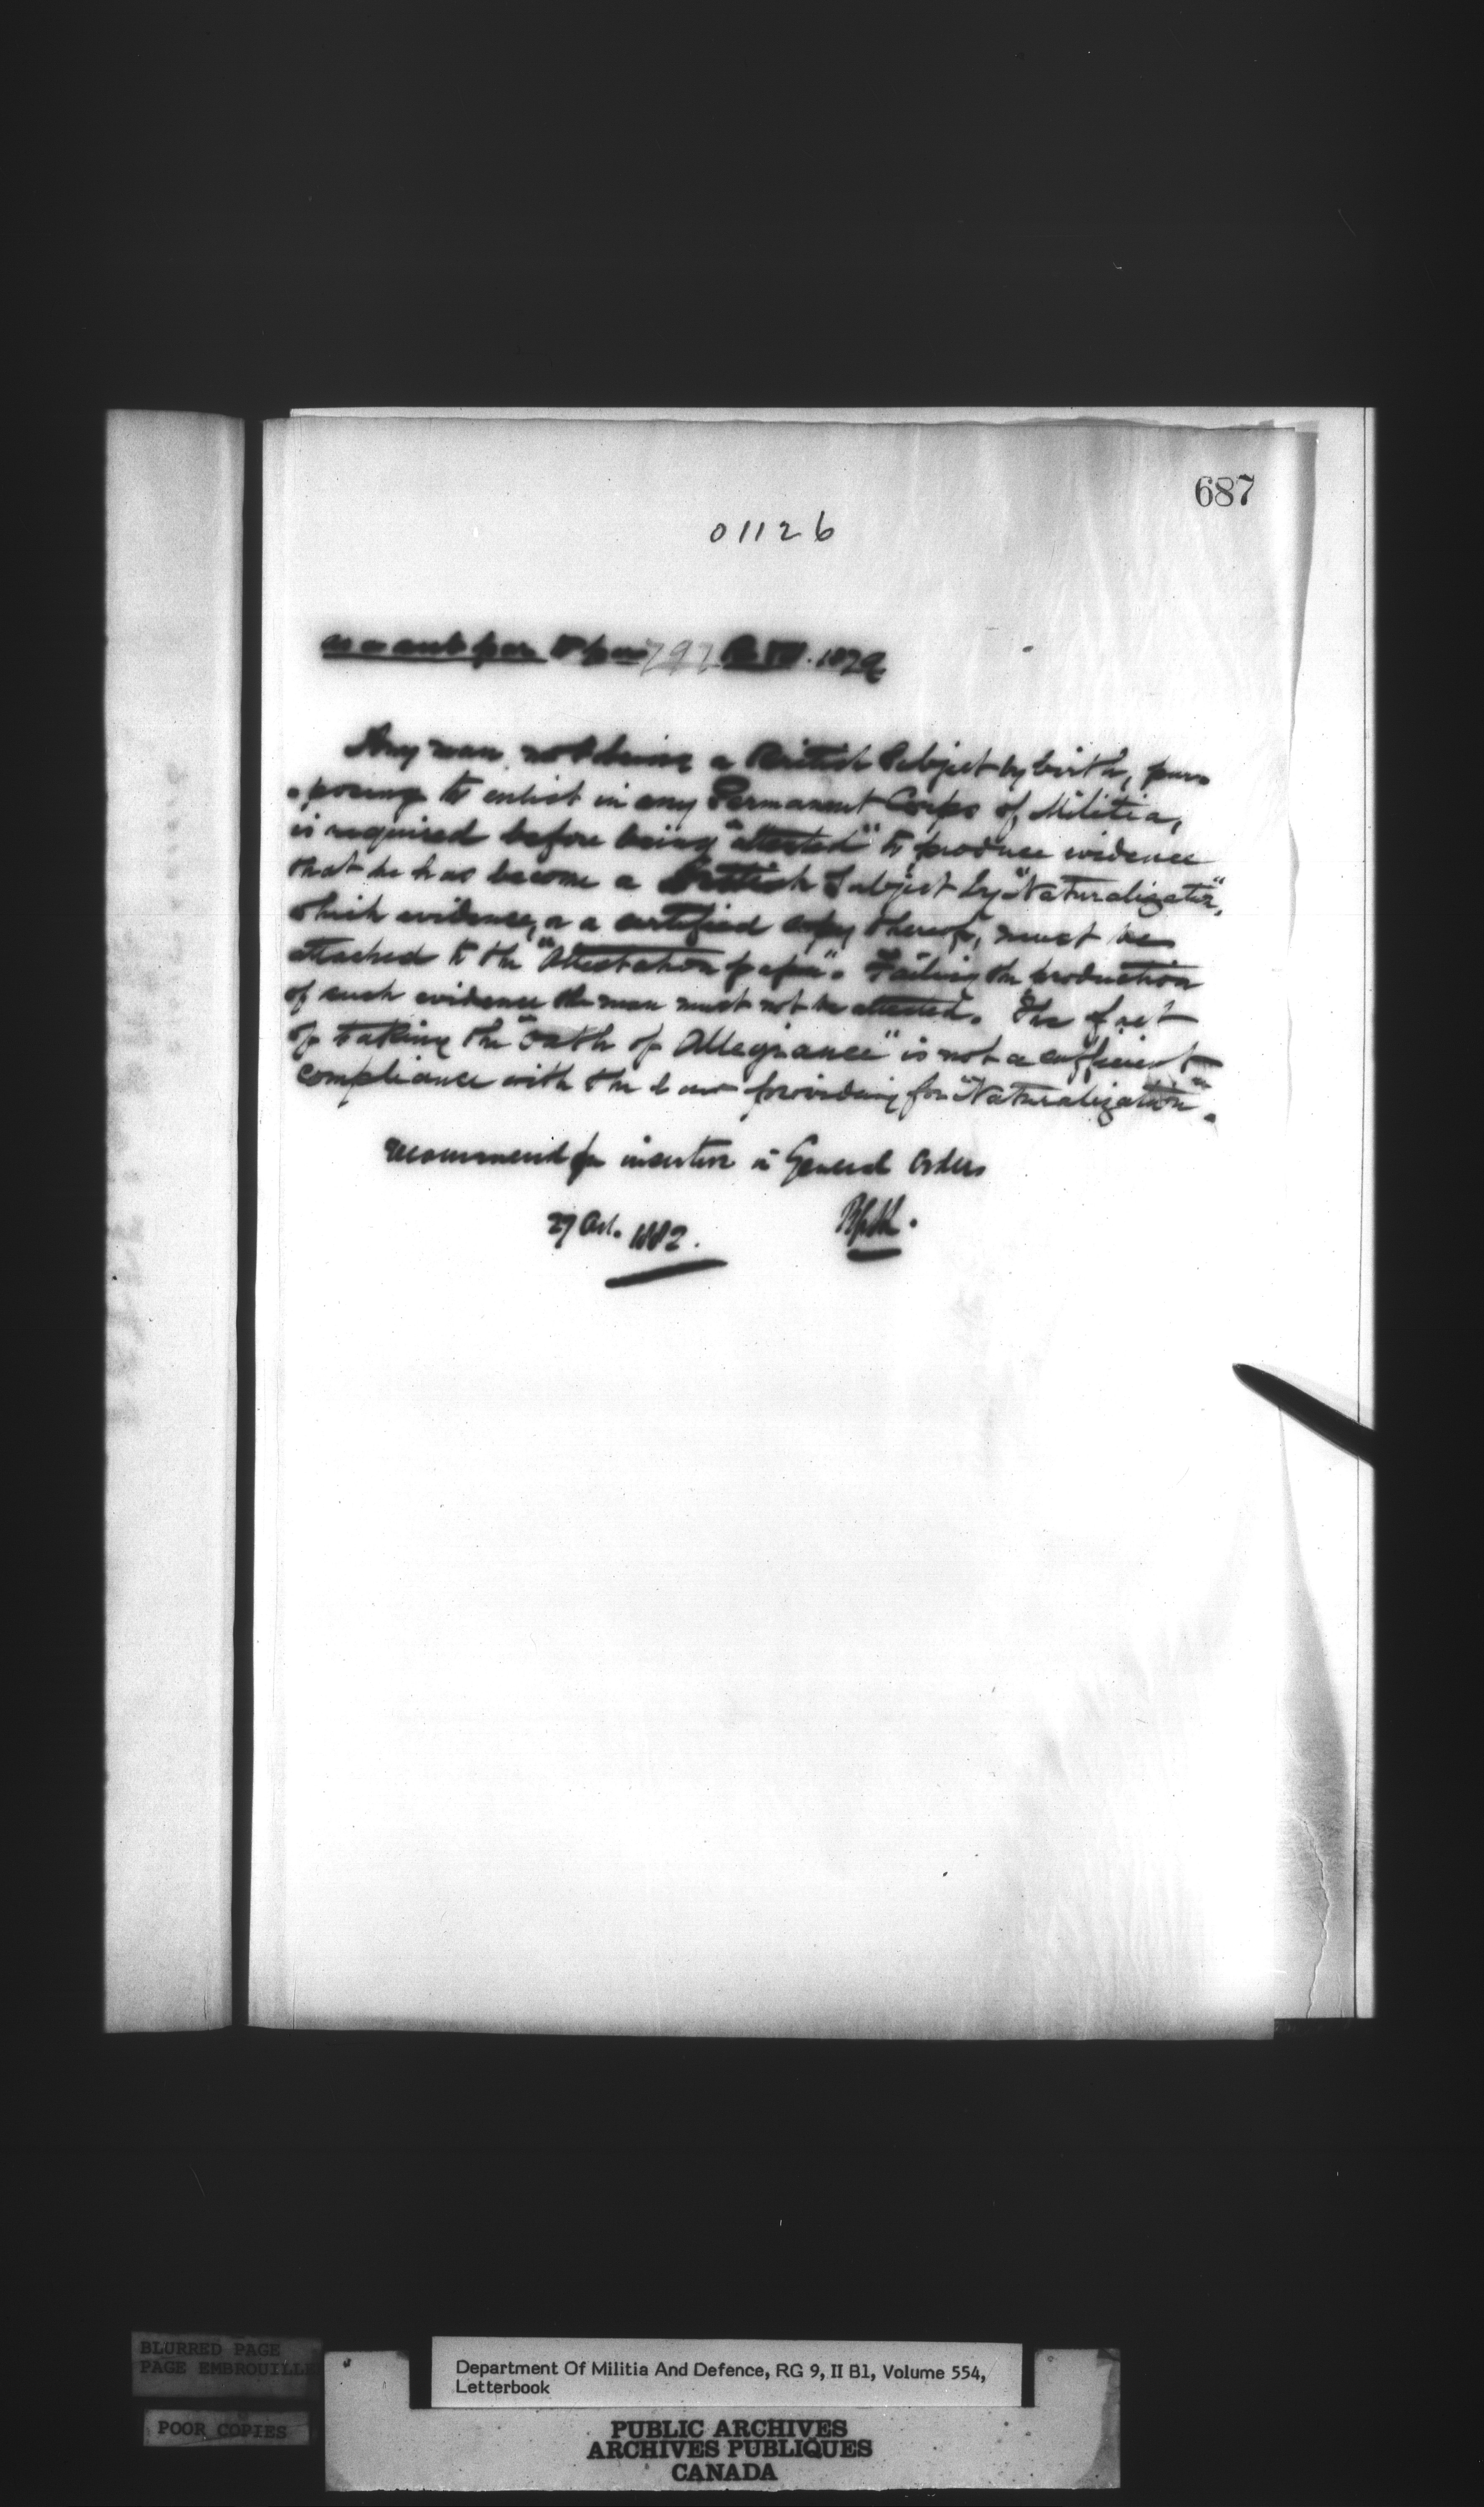 687
01126
as a sub par to par 797 1879
Any man, not being a British Subject by birth, pur
posing to enlist in any Permanent Corps of Militia,
is required before being "attested" to produce evidence
that he has become a British Subject by "Naturalization",
which evidence, or a certified copy thereof, must be
attached to the "Attestation paper". Failing the production
of such evidence the man must not be attested. The fact
of taking the "oath of Allegiance" is not a sufficient
compliance with the law providing for "Naturalization".
recommend for insertion in General Orders
27 Oct. 1882.
BLURRED PAGE
PAGE EMBROUILLE
POOR COPIES
Department Of Militia And Defence, RG 9, II B1, Volume 554,
Letterbook
PUBLIC ARCHIVES
ARCHIVES PUBLIQUES
CANADA